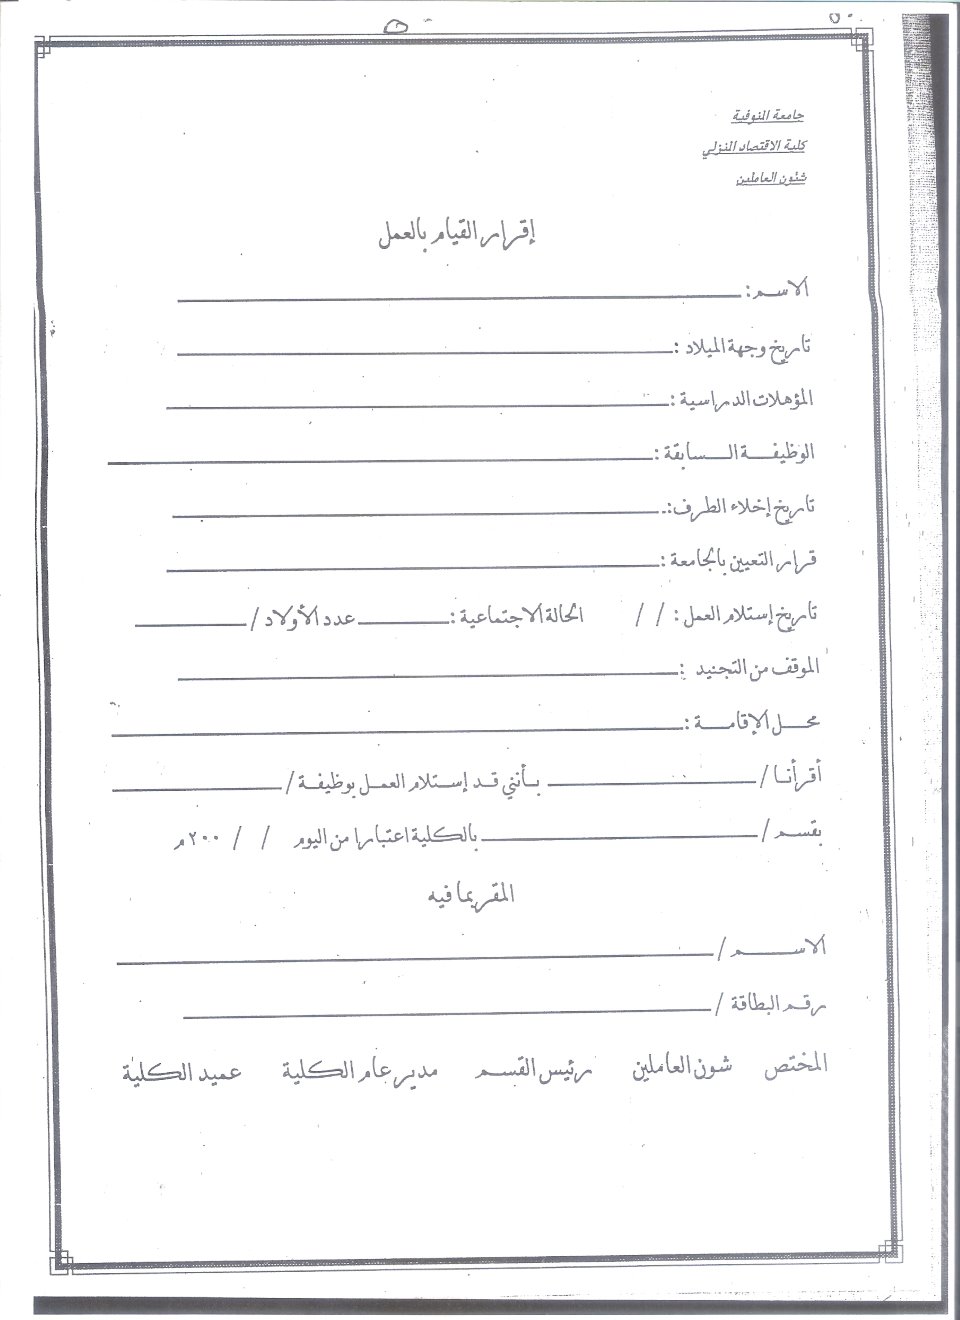 جامعة المنوفية
كلية الاقتصاد المنزلي
شئون العاملين
إقرار القيام بالعمل
الاسم:
تاريخ وجهة الميلاد :
المؤهلات الدراسية :
الوظيفة السابقة :
تاريخ إخلاء الطرف :
قرار التعيين بالجامعة :
تاريخ إستلام العمل : / / الحالة الاجتماعية : عدد الأولاد /
الموقف من التجنيد :
محل الإقامة :
أقر أنا / بأنني قد إستلام العمل بوظيفة /
بقسم / بالكلية اعتبارا من اليوم / / ٢٠٠م
المقر بما فيه
الاسم /
رقم البطاقة /
المختص شون العاملين رئيس القسم مدير عام الكلية عميد الكلية